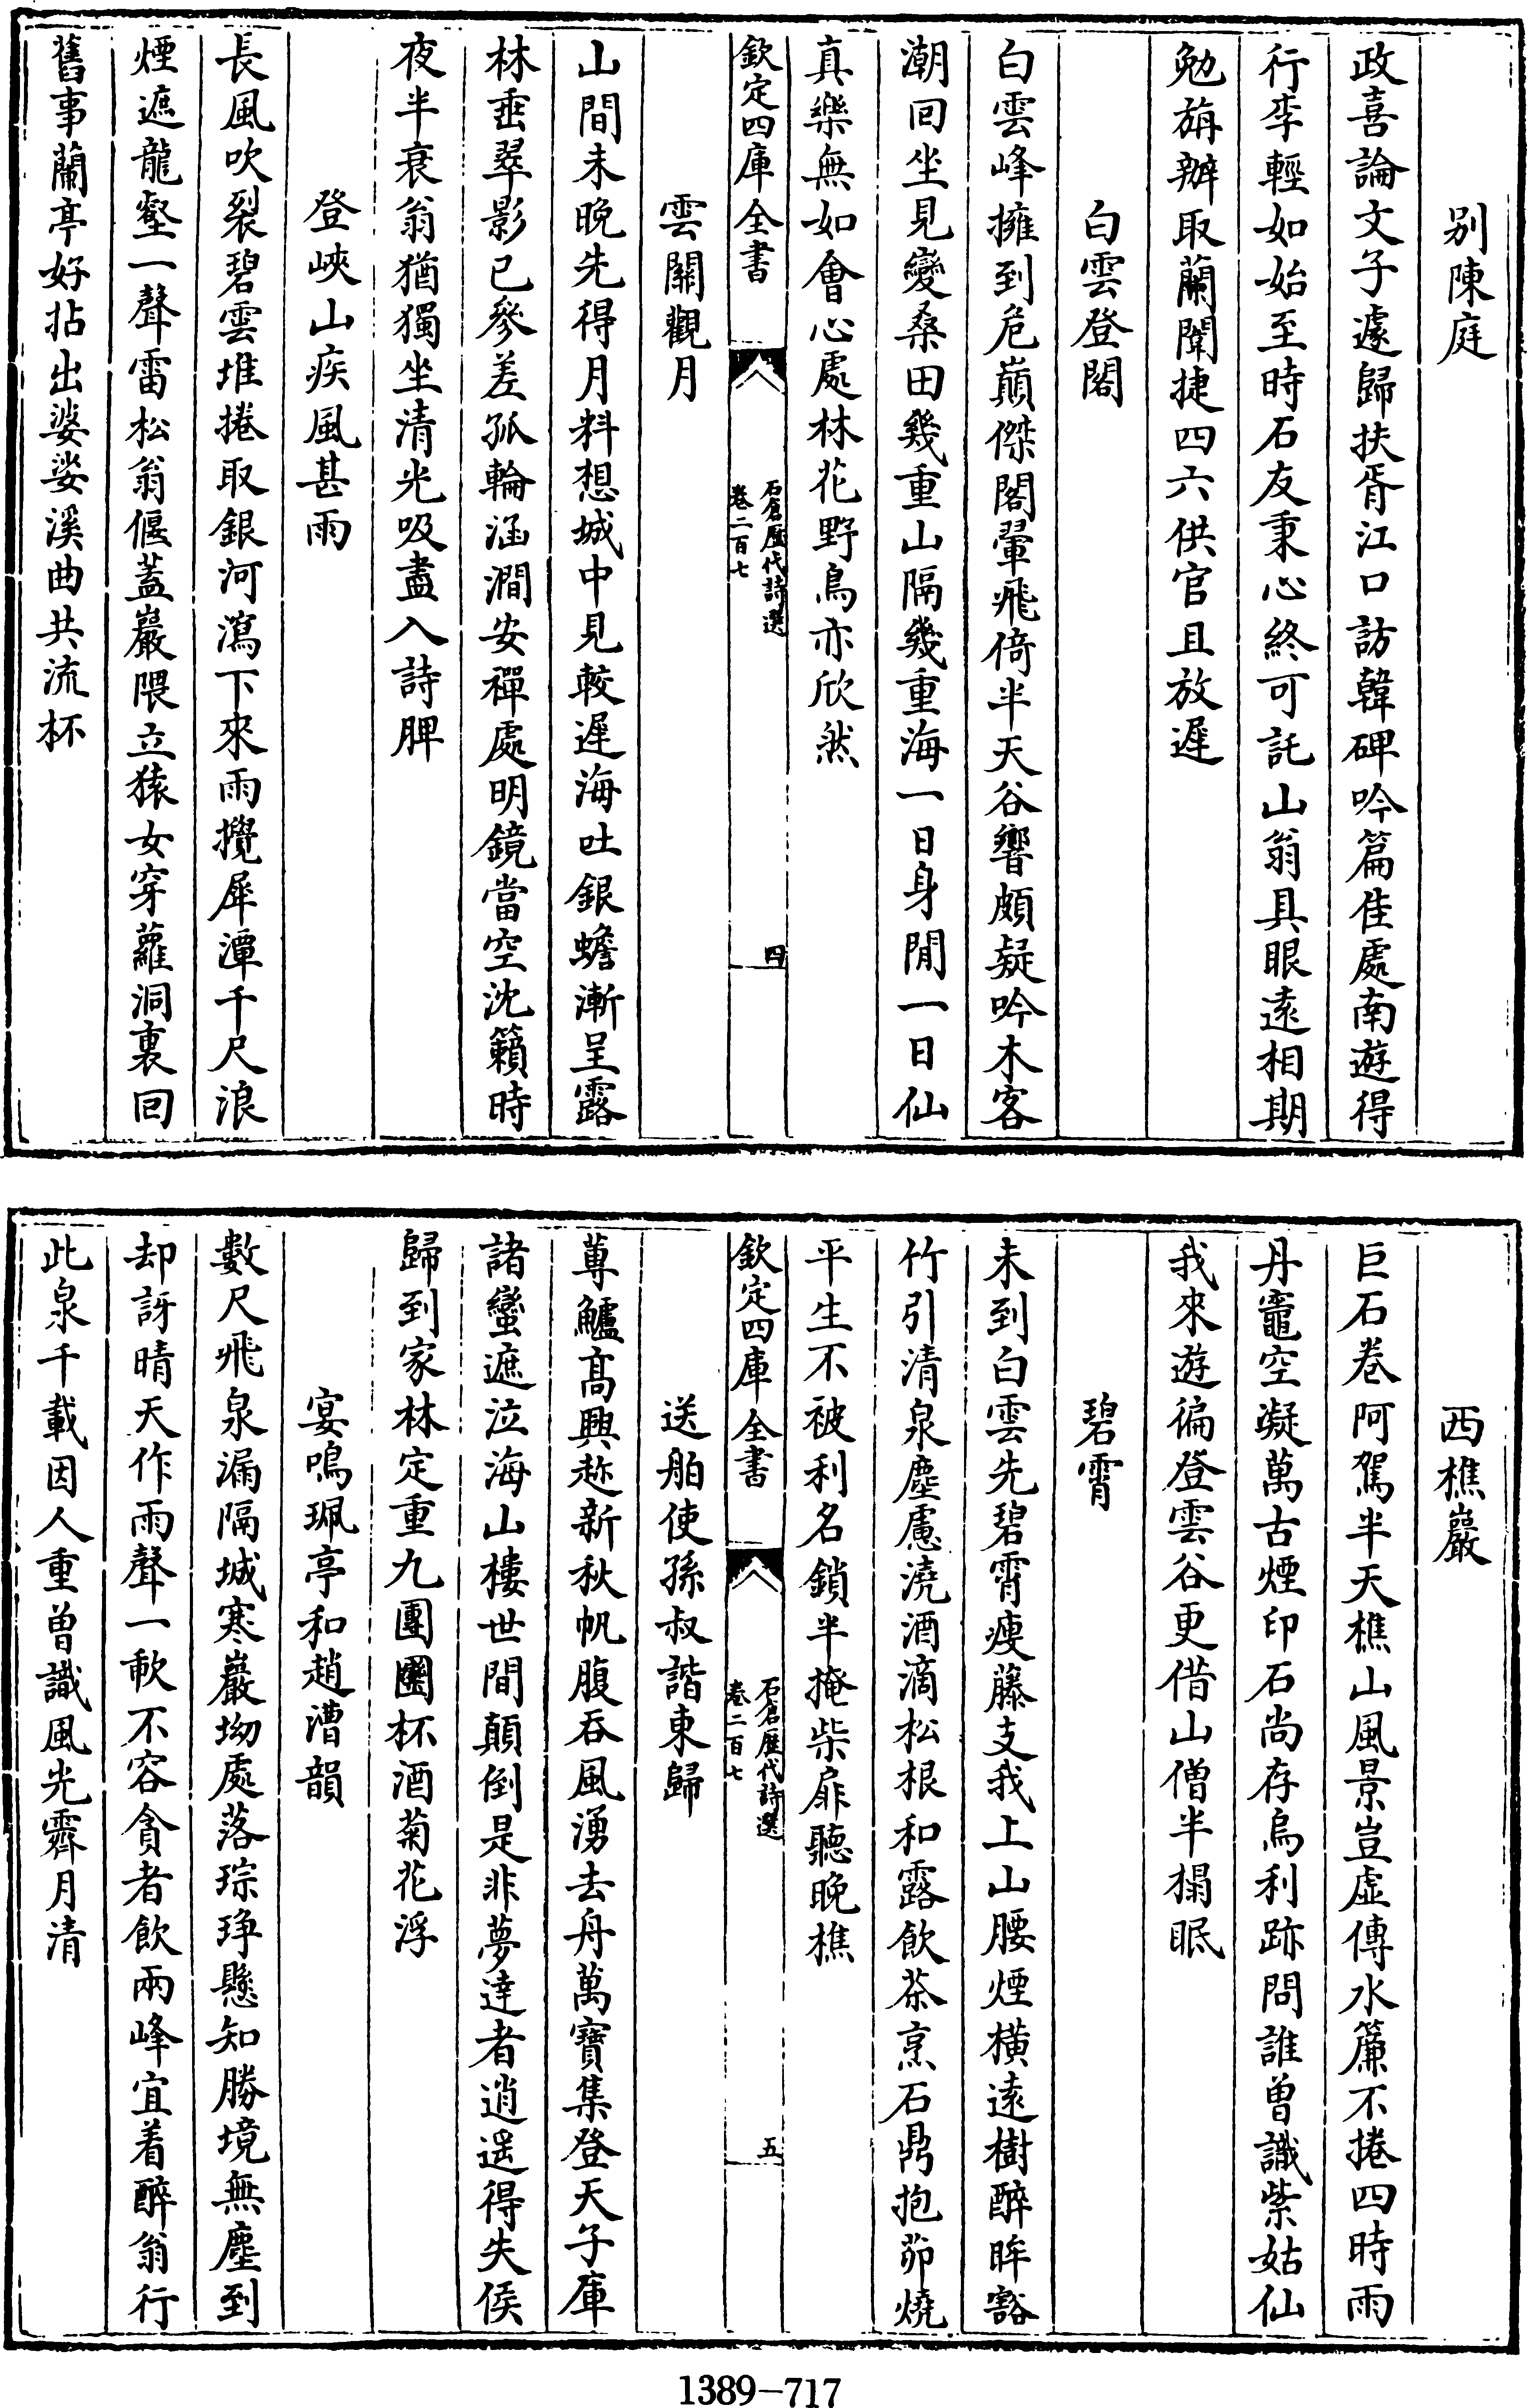 别陳庭
政喜論文子遽歸扶胥江口訪韓碑吟篇佳處南遊得
行李輕如始至時石友秉心終可託山翁具眼遠相期
勉旃辦取蘭闈捷四六供官且放遲
白雲登閣
白雲峰擁到危巔傑閣翬飛倚半天谷響頗疑吟木客
潮回坐見變桑田幾重山隔幾重海一日身閒一日仙
真樂無如會心處林花野鳥亦欣然
欽定四庫全書
石倉歷代詩選
卷二百七
四
雲關觀月
山間未晚先得月料想城中見較遲海吐銀蟾漸呈露
林垂翠影已參差孤輪涵澗安禪處明鏡當空沈籟時
夜半衰翁猶獨坐清光吸盡入詩脾
登峽山疾風甚雨
長風吹裂碧雲堆捲取銀河瀉下來雨攪犀潭千尺浪
煙遮龍壑一聲雷松翁偃蓋巖隈立猿女穿蘿洞裏回
舊事蘭亭好拈出婆娑溪曲共流杯
西樵巖
巨石卷阿駕半天樵山風景豈虛傳水簾不捲四時雨
丹竈空凝萬古煙印石尚存烏利跡問誰曾識紫姑仙
我來遊徧登雲谷更借山僧半榻眠
碧霄
未到白雲先碧霄瘦藤支我上山腰煙橫遠樹醉眸豁
竹引清泉塵慮澆酒滴松根和露飲茶烹石鼎抱茆燒
平生不被利名鎖半掩柴扉聽晚樵
欽定四庫全書
石倉歷代詩選
卷二百七
五
送舶使孫叔諧東歸
蓴鱸高興趂新秋帆腹吞風湧去舟萬寶集登天子庫
諸蠻遮泣海山樓世間顛倒是非夢達者逍遥得失侯
歸到家林定重九團圞杯酒菊花浮
宴鳴珮亭和趙漕韻
數尺飛泉漏隔城寒巖坳處落琮琤懸知勝境無塵到
却訝晴天作雨聲一歃不容貪者飲兩峰宜着醉翁行
此泉千載因人重曾識風光霽月清
1389-717